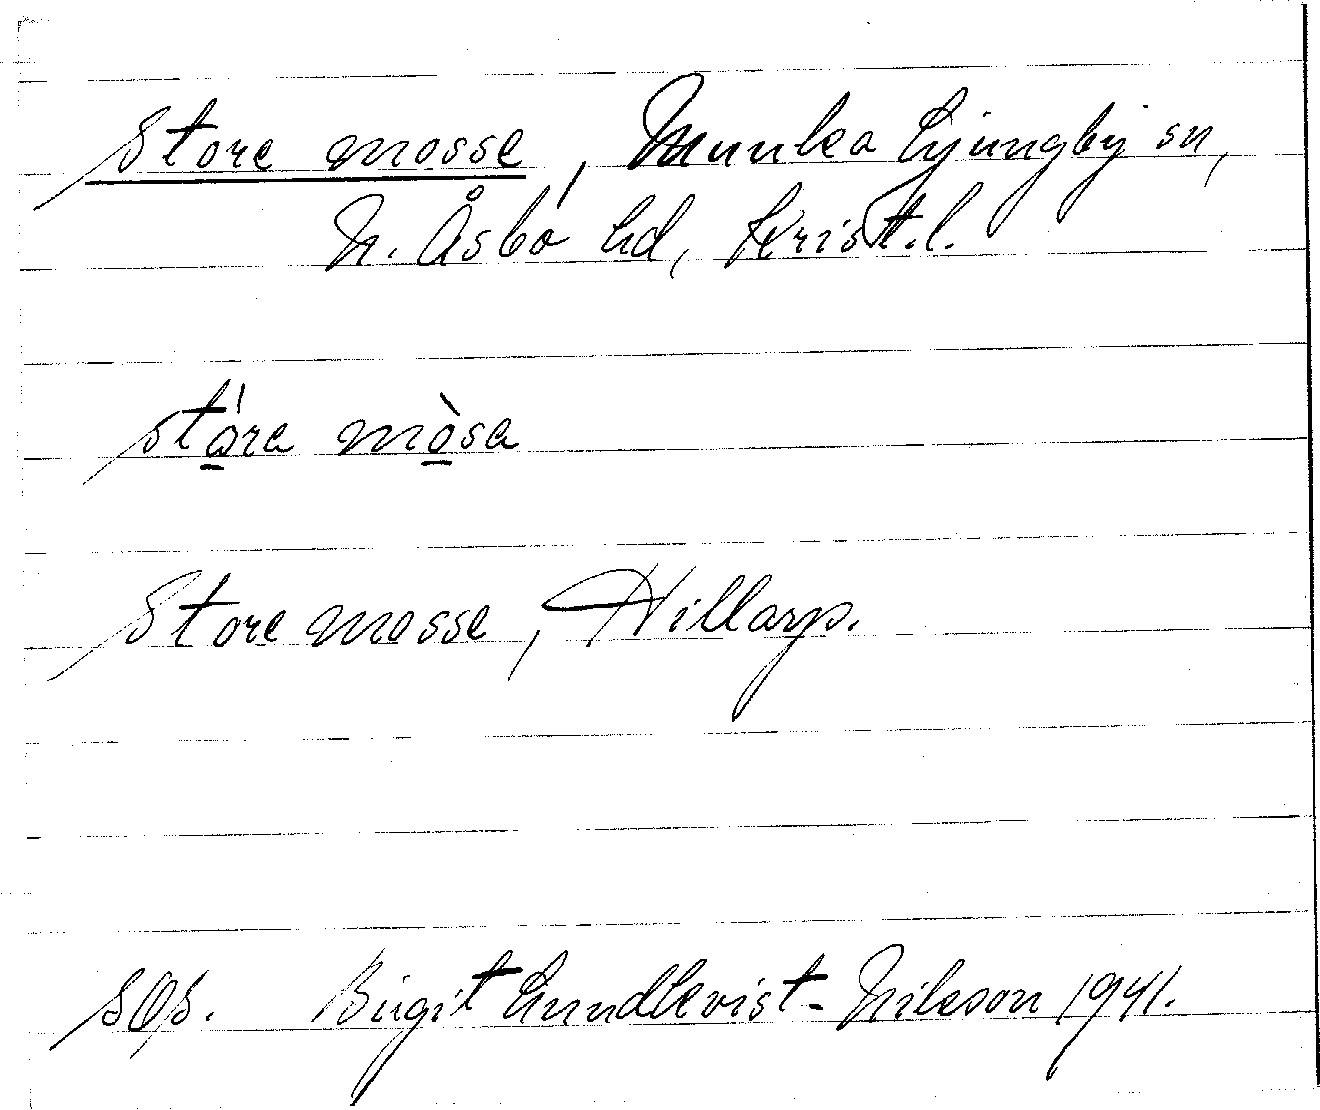 Store mosse, Munka Ljungby sn,
N. Åsbo hd, Krist.l.
stǻra mòsa
Store mosse, Hillarp.
Birgit Lundkvist-Nilsson 1941.